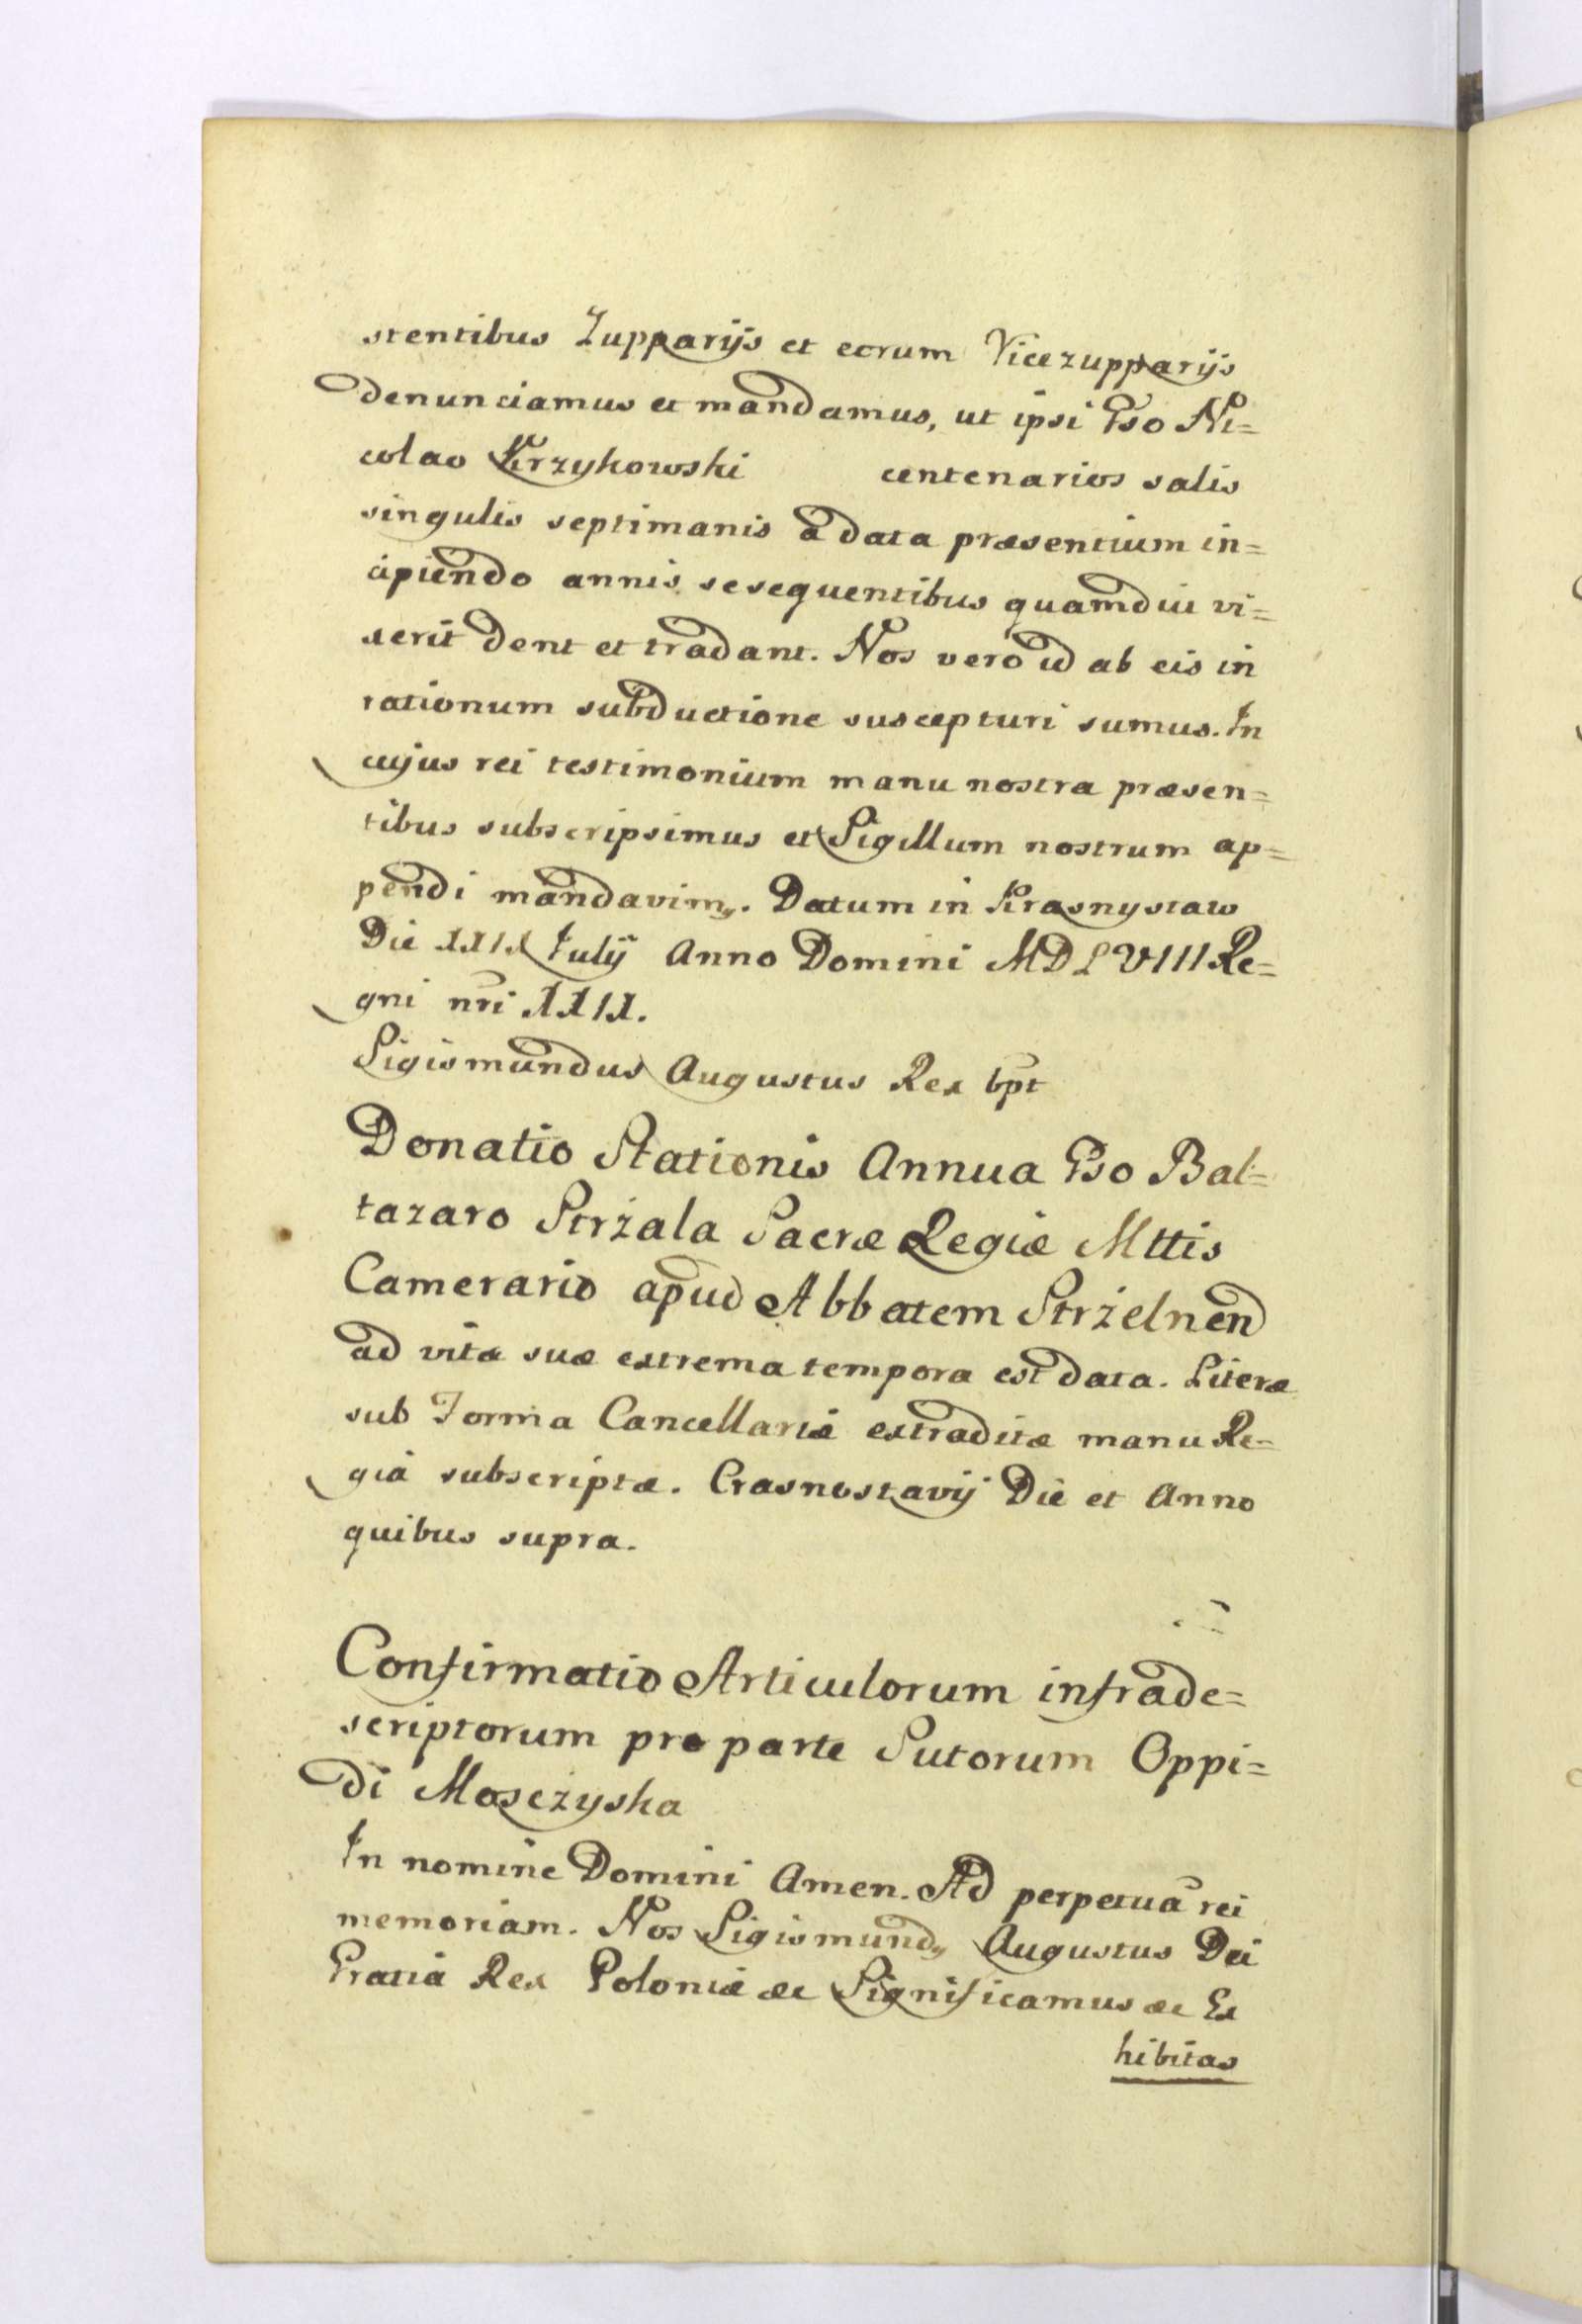 stentibus Zupparijs et eorum Vicezupparijs
denunciamus et mandamus, ut ipsi Gso Ni=
colao Krzykowski centenarios salis
singulis septimanis à data præsentium in=
cipiendo annis sesequentibus quamdiu vi=
xerit dent et tradant. Nos vero id ab eis in
rationum subductione suscepturi sumus. In
cujus rei testimonium manu nostra præsen=
tibus subscripsimus et Sigillum nostrum ap=
pendi mandavimꝰ. Datum in Krasnystaw
Die XXIX Julij Anno Domini MDLVIII Re=
gni nri XXIX.
Sigismundus Augustus Rex spt
Donatio Stationis Annua Gso Bal=
tazaro Strżala Sacræ Regiæ Mttis
Camerario apud Abbatem Strżelnen
ad vitæ suæ extrema tempora est data. Literæ
sub Forma Cancellariæ extraditæ manu Re=
giâ subscriptæ. Crasnostavij Die et Anno
quibus supra.
Confirmatio Articulorum infrade=
scriptorum pro parte Sutorum Oppi=
di Mosczyska
In nomine Domini Amen. Ad perpetuã rei
memoriam. Nos Sigismundꝰ Augustus Dei
Gratiâ Rex Poloniæ &c Significamus &c Ex
hibitas